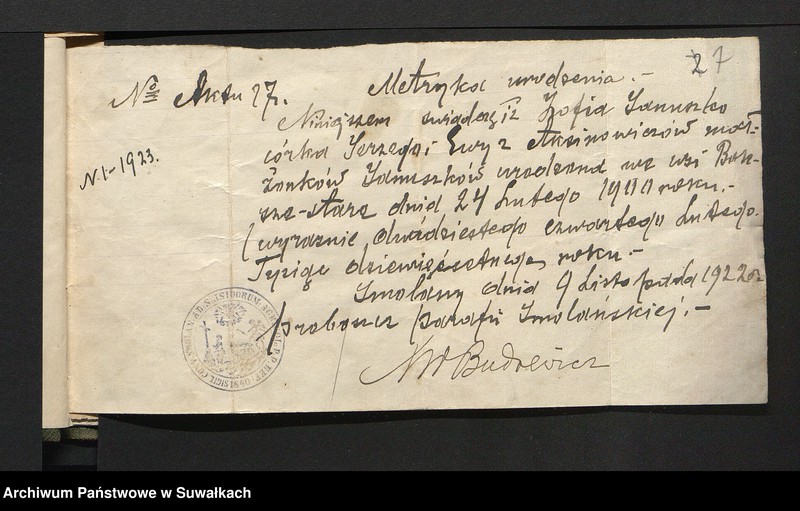 27
No Aktu 27.
Metryka urodzenia.-
Niniejszem świadczę iż Zofia Januszko
N 1-1923.
córka Jerzego i Ewy z Aksinowiczów mał-
żonków Januszków urodzona we wsi Bok-
sze-stare dnia 24 Lutego 1900 roku.-
(wyraźnie, dwudziestego czwartego Lutego
Tysiąc dziewięćsetnego, roku.-
Smolany dnia 9 Listopada 1922 r.
proboszcz parafji Smolańskiej:-
S. ISIDORUM
SIGIL
Archiwum Państwowe w Suwałkach